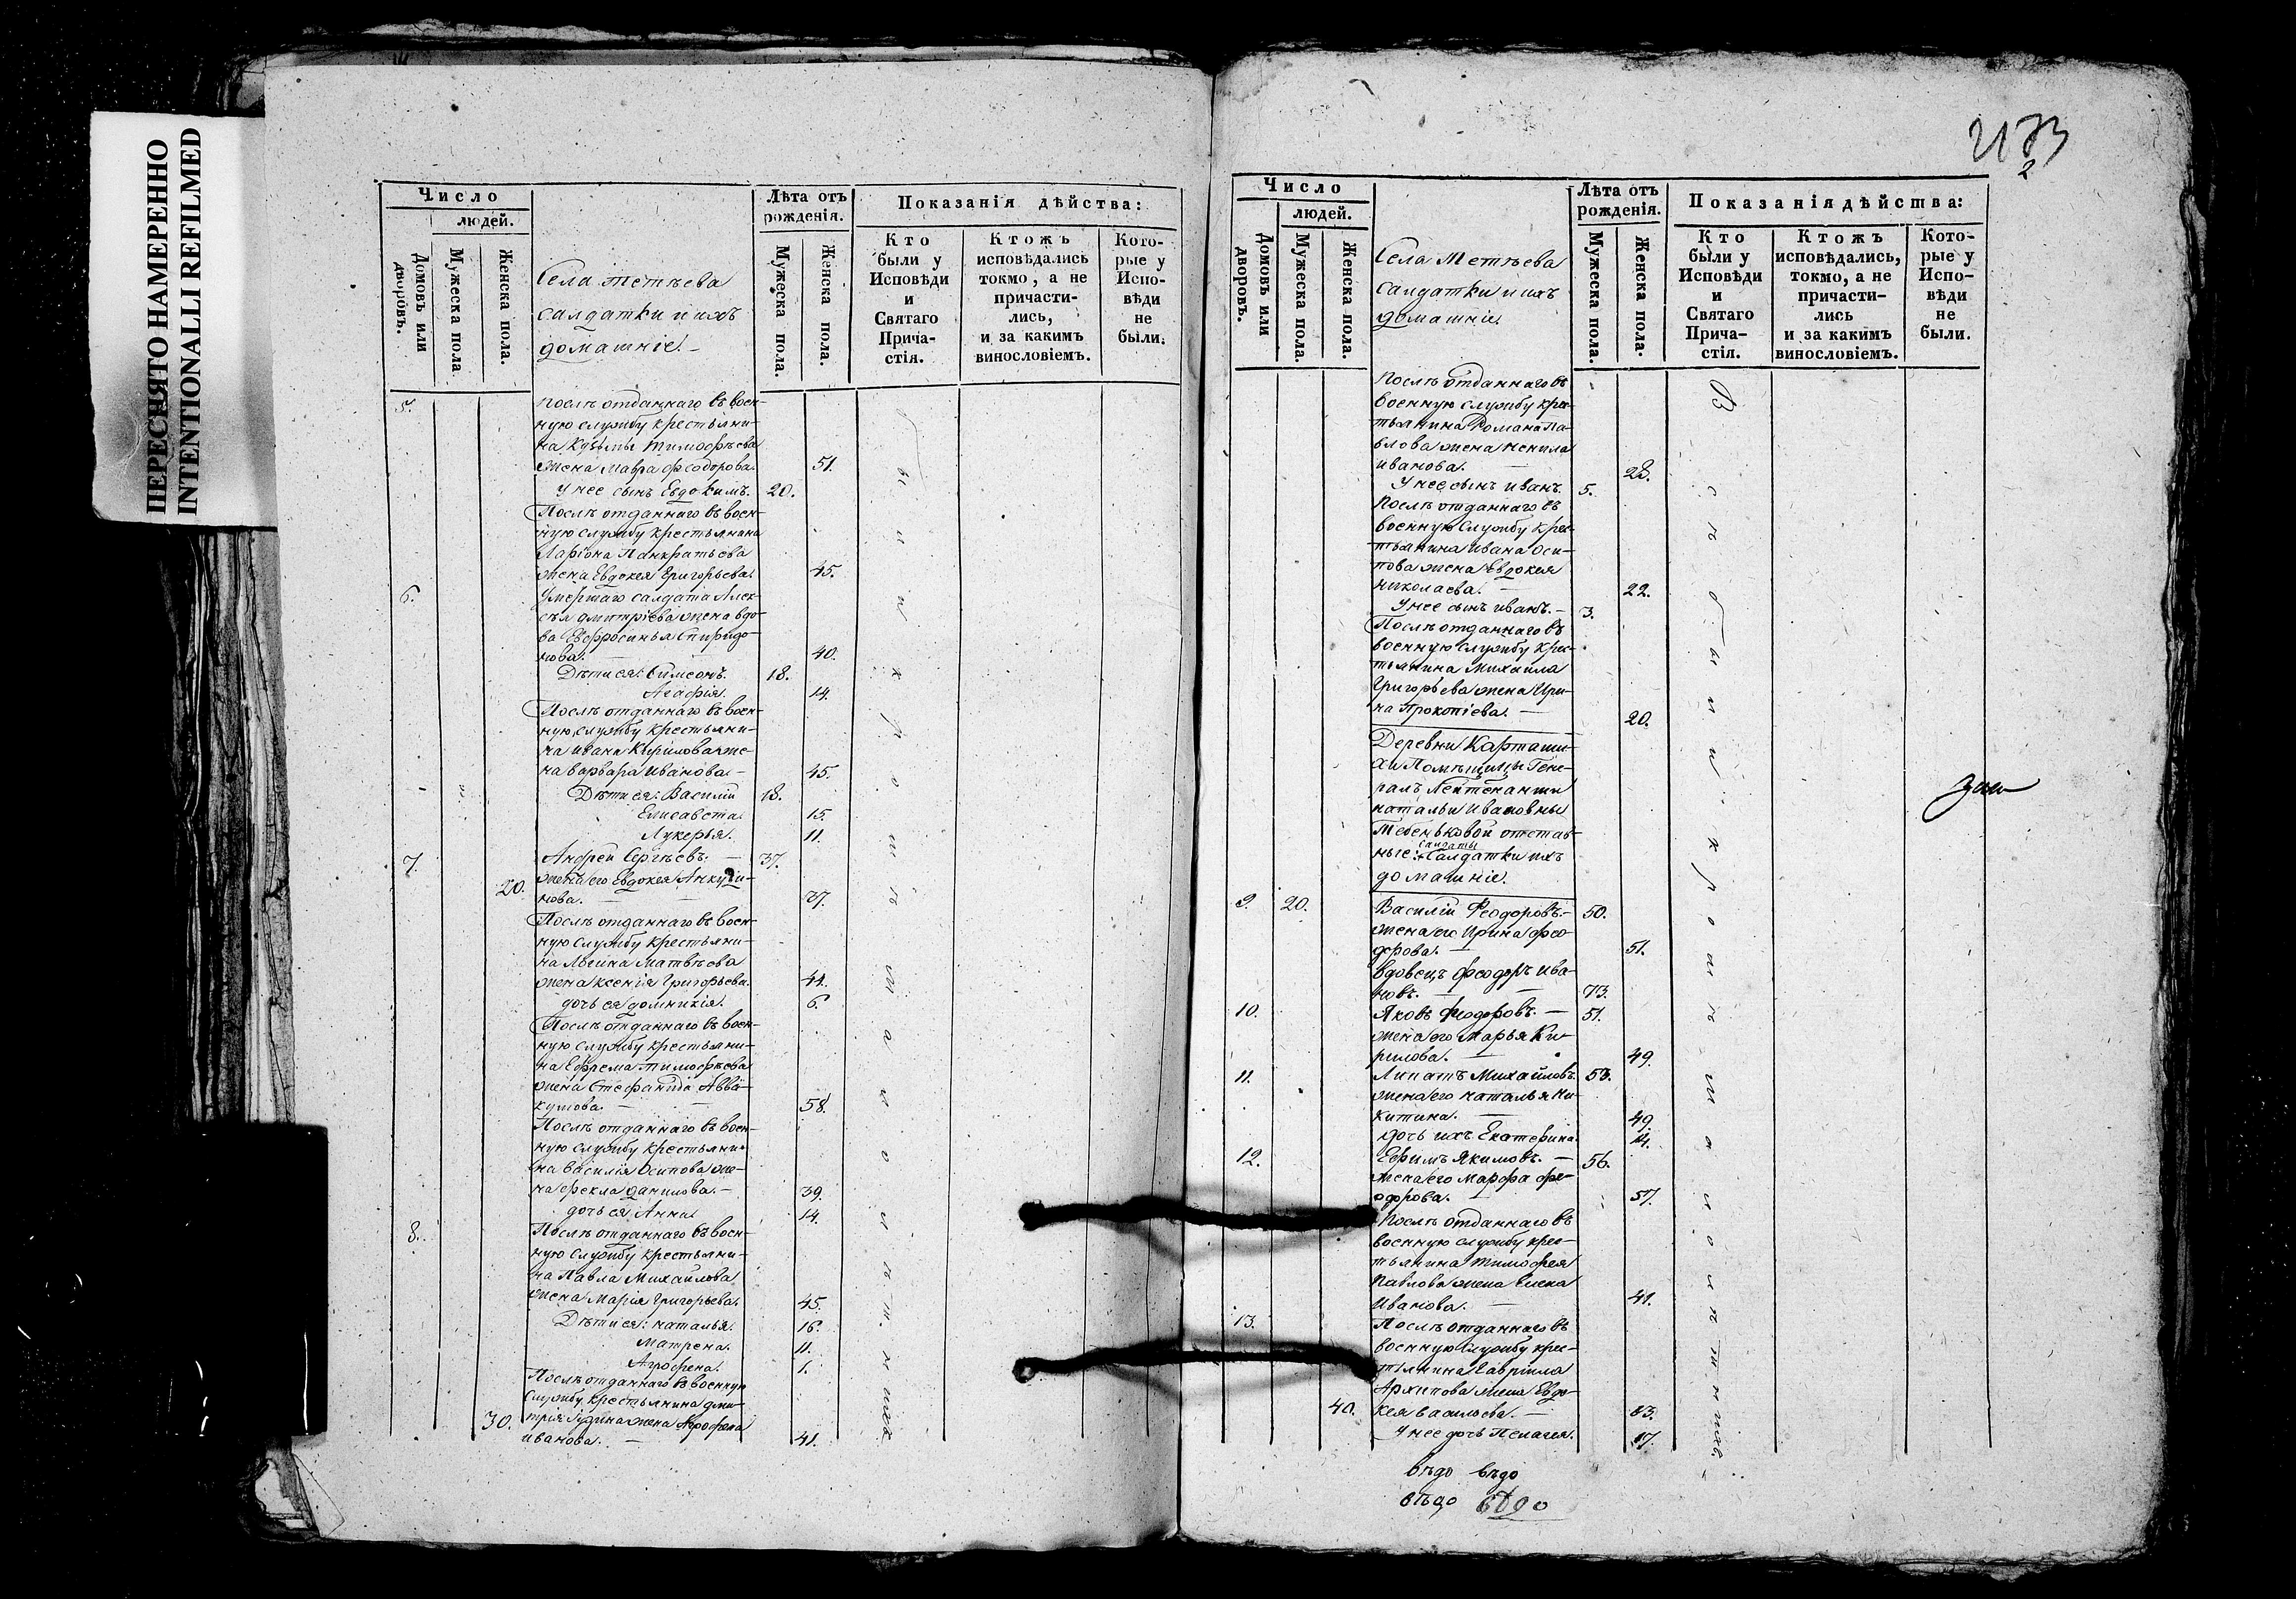 ПЕРЕСНЯТО НАМЕРЕННО
INTENTIONALLI REFILMED
Число
людей.
Домовъ или дворовъ.
Мужеска пола.
Женска пола.
Села Тетѣева
салдатки и ихъ
домашніе.
Лѣта отъ рожденія.
Мужеска пола.
Женска пола.
Показанія дѣйства:
Кто были у Исповѣди и Святаго Прича-стія.
Ктожъ исповѣдались токмо, а не причасти-лись, и за какимъ винословіемъ.
Кото-рые у Испо-вѣди не были.
5. Послѣ отданнаго въ воен-
ную службу крестьяни-
на Кузьмы Тимофѣева
жена Мавра Феодорова. 51.
У нее сынъ Евдокимъ. 20.
Послѣ отданнаго въ воен-
ную службу крестьянина
Ларіона Панкратьева
жена Евдокея Григорьева. 45.
6. Умершаго салдата Алек-
сѣя Дмитріева жена вдо-
ва Евфросинья Спиридо-
нова. 40.
Дѣти ея: Симеонъ. 18.
Агафія. 14.
Послѣ отданнаго въ воен-
ную службу крестьяни-
на Ивана Кирилова же-
на Варвара Иванова. 45.
Дѣти ея: Василій 18.
Елисавета. 15.
Лукерья. 11.
7. Андрей Сергѣевъ. 37.
жена его Евдокея Анкуди-
20. нова. 37.
Послѣ отданнаго въ воен-
ную службу крестьяни-
на Логина Матвѣева
жена Ксенія Григорьева. 44.
дочь ея Домникія. 6.
Послѣ отданнаго въ воен-
ную службу крестьяни-
на Ефрема Тимофѣева
жена Стефанида Авва-
кумова. 58.
Послѣ отданнаго въ воен-
ную службу крестьяни-
на Василія Осипова же-
на Фекла Данилова. 39.
дочь ея Анна. 14.
8. Послѣ отданнаго въ воен-
ную службу крестьяни-
на Павла Михайлова
жена Марія Григорьева. 45.
Дѣти ея: Наталья. 16.
Матрена. 11.
Агрофена. 1.
Послѣ отданнаго въ военную
службу крестьянина Дми-
30. трія Юдина жена Агрофена
Иванова. 41.
2
Число
людей.
Домовъ или дворовъ.
Мужеска пола.
Женска пола.
Села Тетѣева
салдатки и ихъ
домашніе.
Лѣта отъ рожденія.
Мужеска пола.
Женска пола.
Показанія дѣйства:
Кто были у Исповѣди и Святаго Прича-стія.
Ктожъ исповѣдались, токмо, а не причасти-лись и за какимъ винословіемъ.
Кото-рые у Испо-вѣди не были.
Послѣ отданнаго въ
военную службу крес-
тьянина Романа Па-
влова жена Ненила
Иванова. 28.
У нее сынъ Иванъ. 5.
Послѣ отданнаго въ
военную службу крес-
тьянина Ивана Оси-
пова жена Евдокея
Николаева. 22.
У нее сынъ Иванъ. 3.
Послѣ отданнаго въ
военную службу крес-
тьянина Михаила
Григорьева жена Ири-
на Прокопіева. 20.
Деревни Карташи-
хи Помѣщицы Гене-
ралъ Лейтенанши
Натальи Ивановны
Тебеньковой отстав-
ные салдаты салдатки ихъ
домашніе.
9. 20. Василій Феодоровъ. 50.
жена его Ирина Фео-
дорова. 51.
Вдовецъ Феодоръ Ива-
новъ. 73.
10. Яковъ Феодоровъ. 51.
жена его Марья Ки-
рилова. 49.
11. Липатъ Михайловъ. 53.
жена его Наталья Ни-
китина. 49.
дочь ихъ Екатерина. 14.
12. Ефимъ Якимовъ. 56.
жена его Марфа Фе-
одорова. 57.
Послѣ отданнаго въ
военную службу крес-
тьянина Тимофея
Павлова жена Елена
Иванова. 41.
13. Послѣ отданнаго въ
военную службу крес-
тьянина Гавріила
Архипова жена Евдо-
40. кея Васильева. 83.
У нее дочь Пелагея. 17.
вѣдо вѣдо
вѣдо